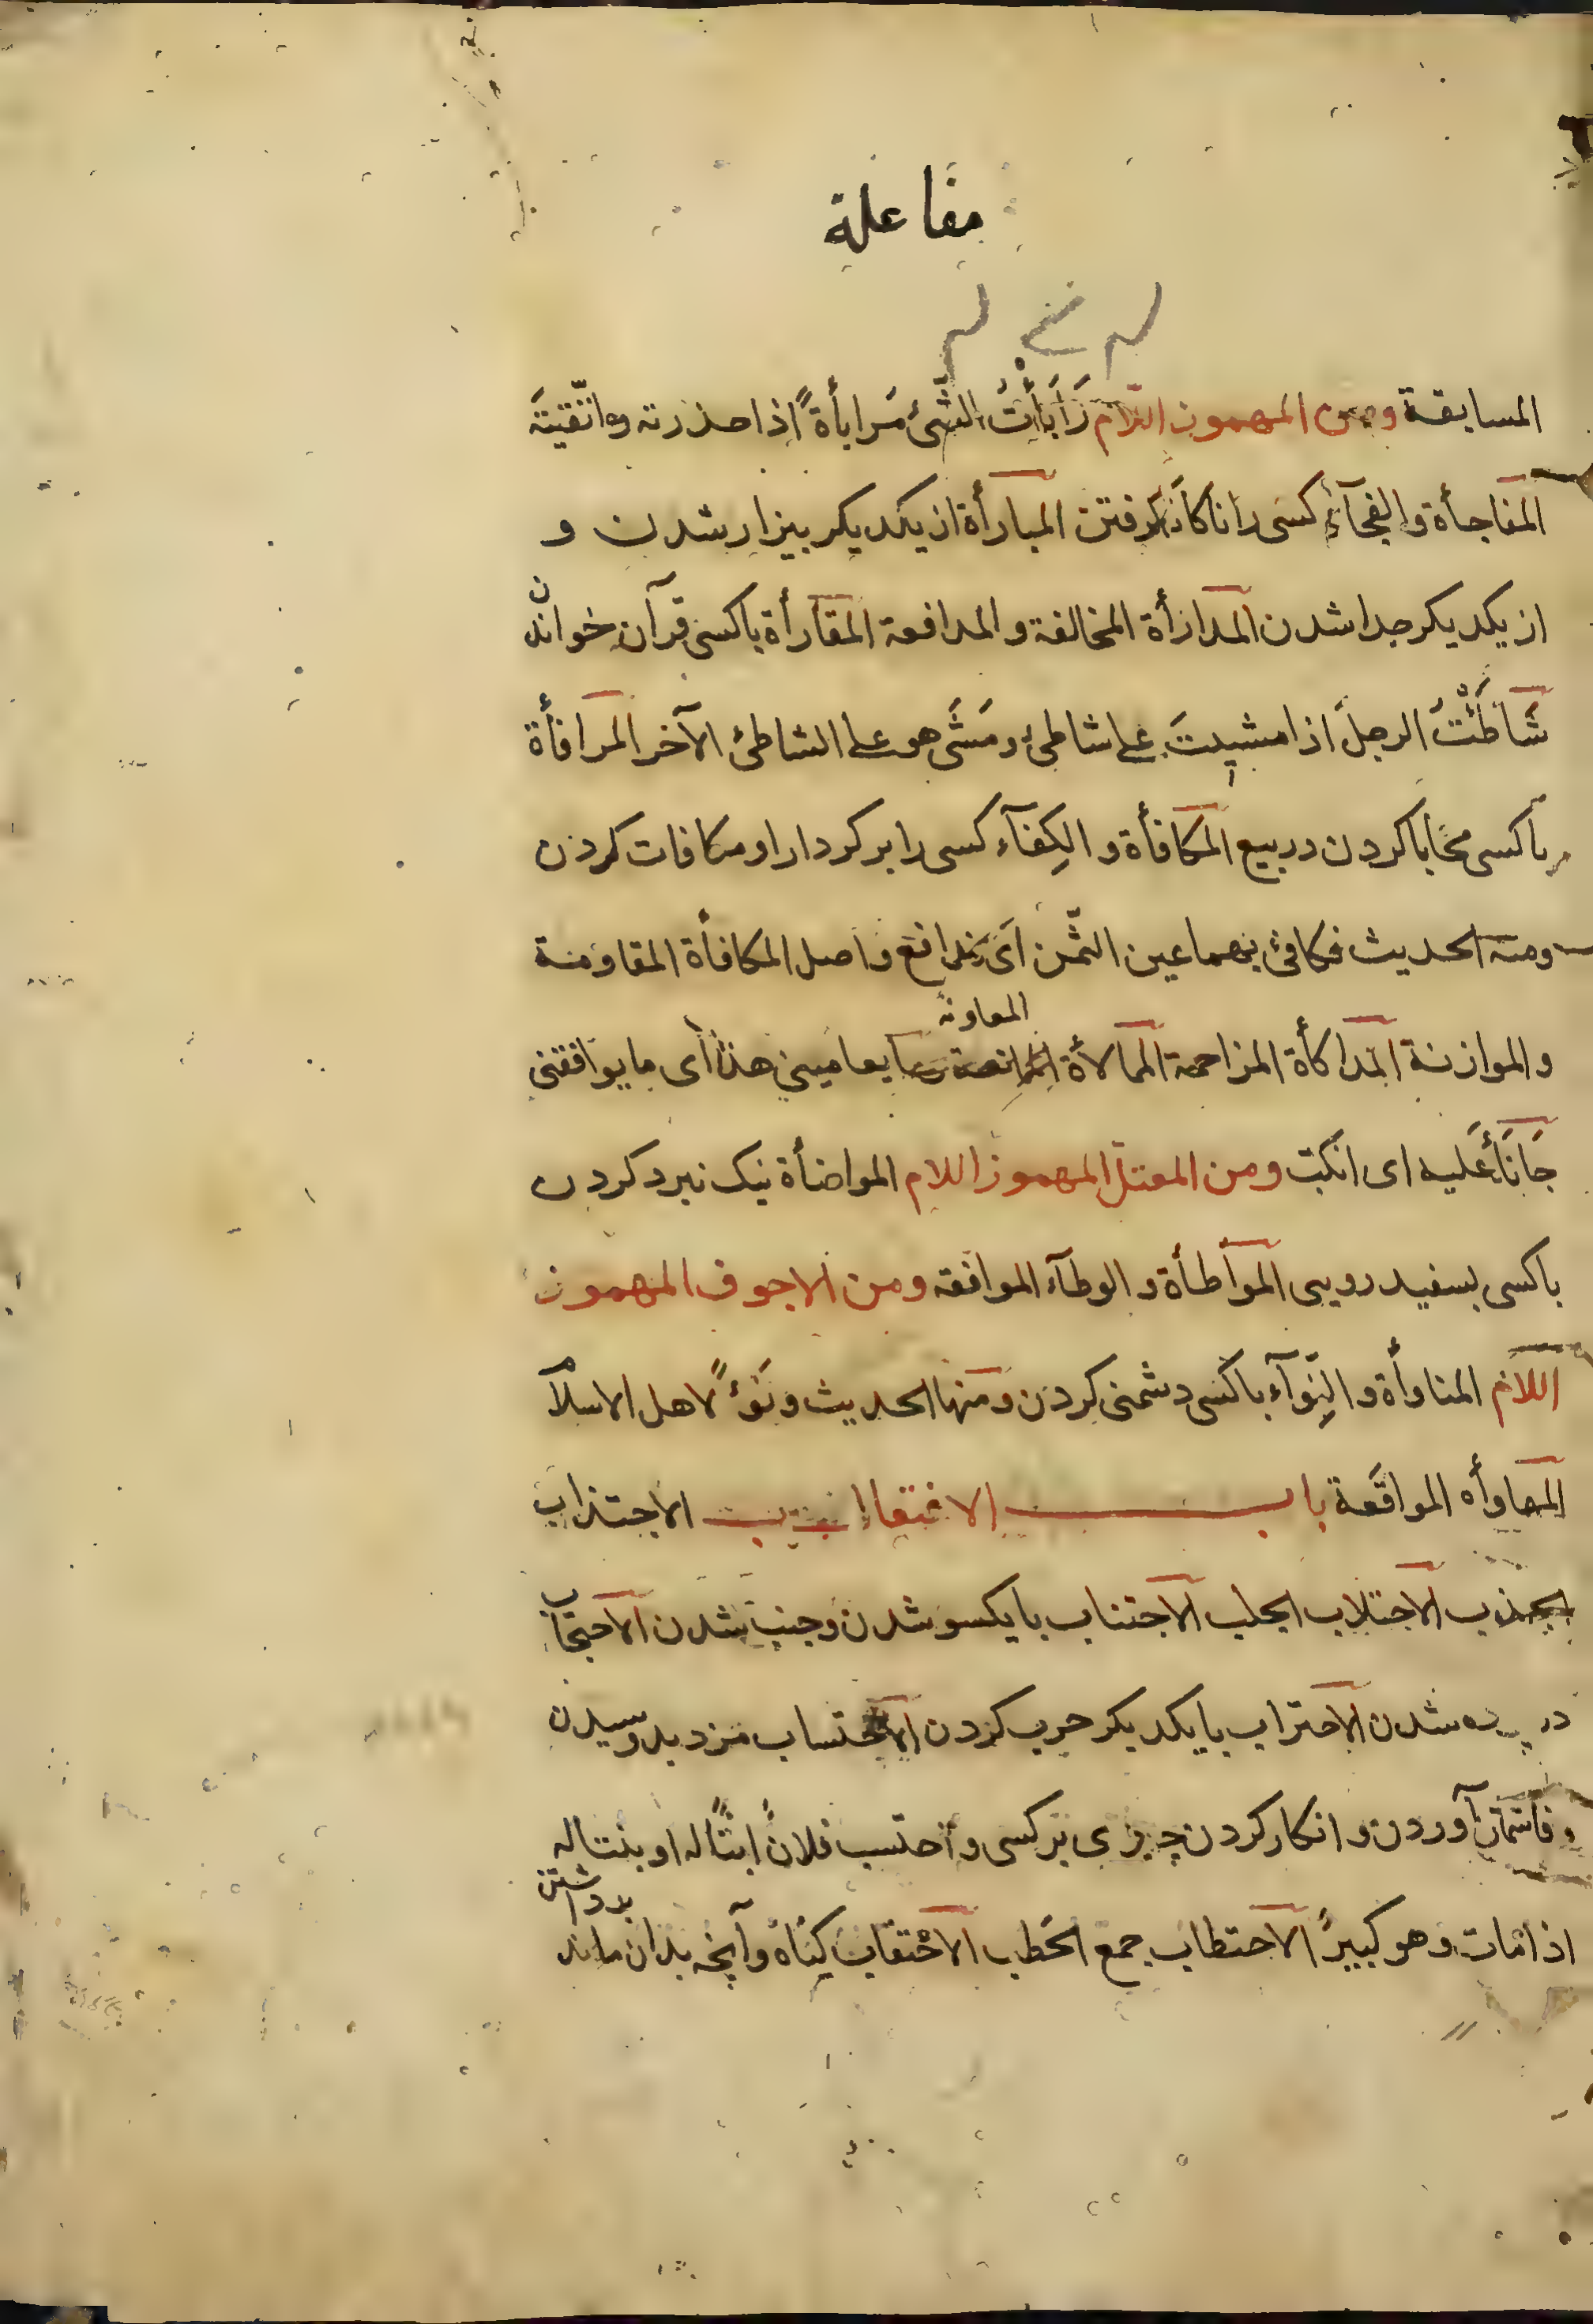 مفاعلة
المسابقة ومن المهموز اللّام رَابَأْتُ الشّئ مَرابأةً اذا حذرته واتّقيتَه
المفاجأة والفجآء كسی را ناکاه کرفتن المبارأة از یکدیکر بیزار شدن و
از یکدیکر جدا شدن المدارأة المخالفة والمدافعة المقارأة باکسی قرآن خواندن
شَاطَئْتُ الرجلَ اذا مشیتَ علی شاطئ ومَشَی هو علی الشاطئ الآخر المرافأة
باکسی محابا کردن در بیع المکافأة والکِفآء کسی را بر کردار او مکافات کردن
ومنه الحدیث فکافئ بهما عین الثّمن ای یدافع واصل المکافأة المقاومة
المعاونة
والموازنة المداکأة المزاحمة الممالأة ما یعامینی هذا ای ما یوافقنی
جَانَأَ عَلیه ای انکبّ ومن المعتلّ المهموز اللام المواضأة نیک نبرد کردن
باکسی بسفید رویی المواطأة والوطآء الموافقه ومن الاجوف المهموز
اللّام المناوأة والنِّوآء باکسی دشمنی کردن ومنها الحدیث ونَوْءً لاهل الاسلام
المهاوأه الموافَقة باب الافتعال ب الاجتذاب
الجذب الاجتلاب الجلب الاجتناب بایکسو شدن وجنب شدن الاحتجاب
در پرده شدن الاحتراب بایکدیکر حرب کردن الاحتساب مزد بدوسیدن
وفاشمار آوردن وانکار کردن چیزی بر کسی واحتسب فلانٌ ابنًا له او بنتا له
اذا مات وهو کبیرٌ الاحتطاب جمع الحَطَب الاحتقاب کناه وآنچه بدان ماند
برداشتن